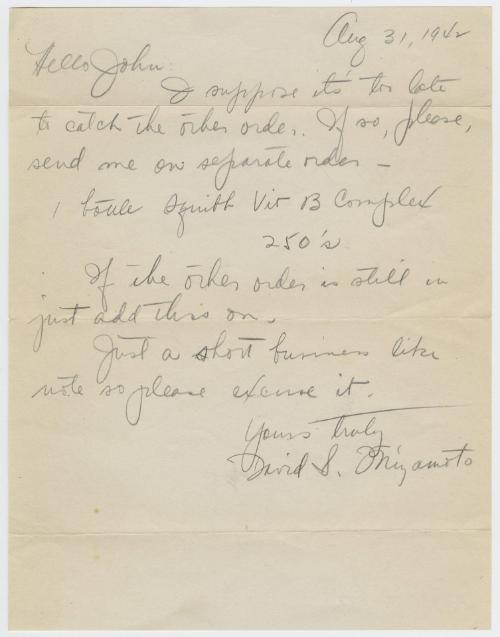 Aug 31, 1942
Hello John:
I suppose it's too late
to catch the other order. If so, please,
send me on separate order –
1 bottle Squibb Vit B Complex
250's
If the other order is still in
just add this on.
Just a short business like
note so please excuse it.
Yours Truly
David S. Miyamoto